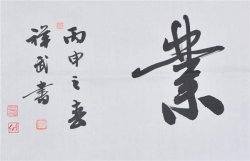 業
丙申之春
祥武書